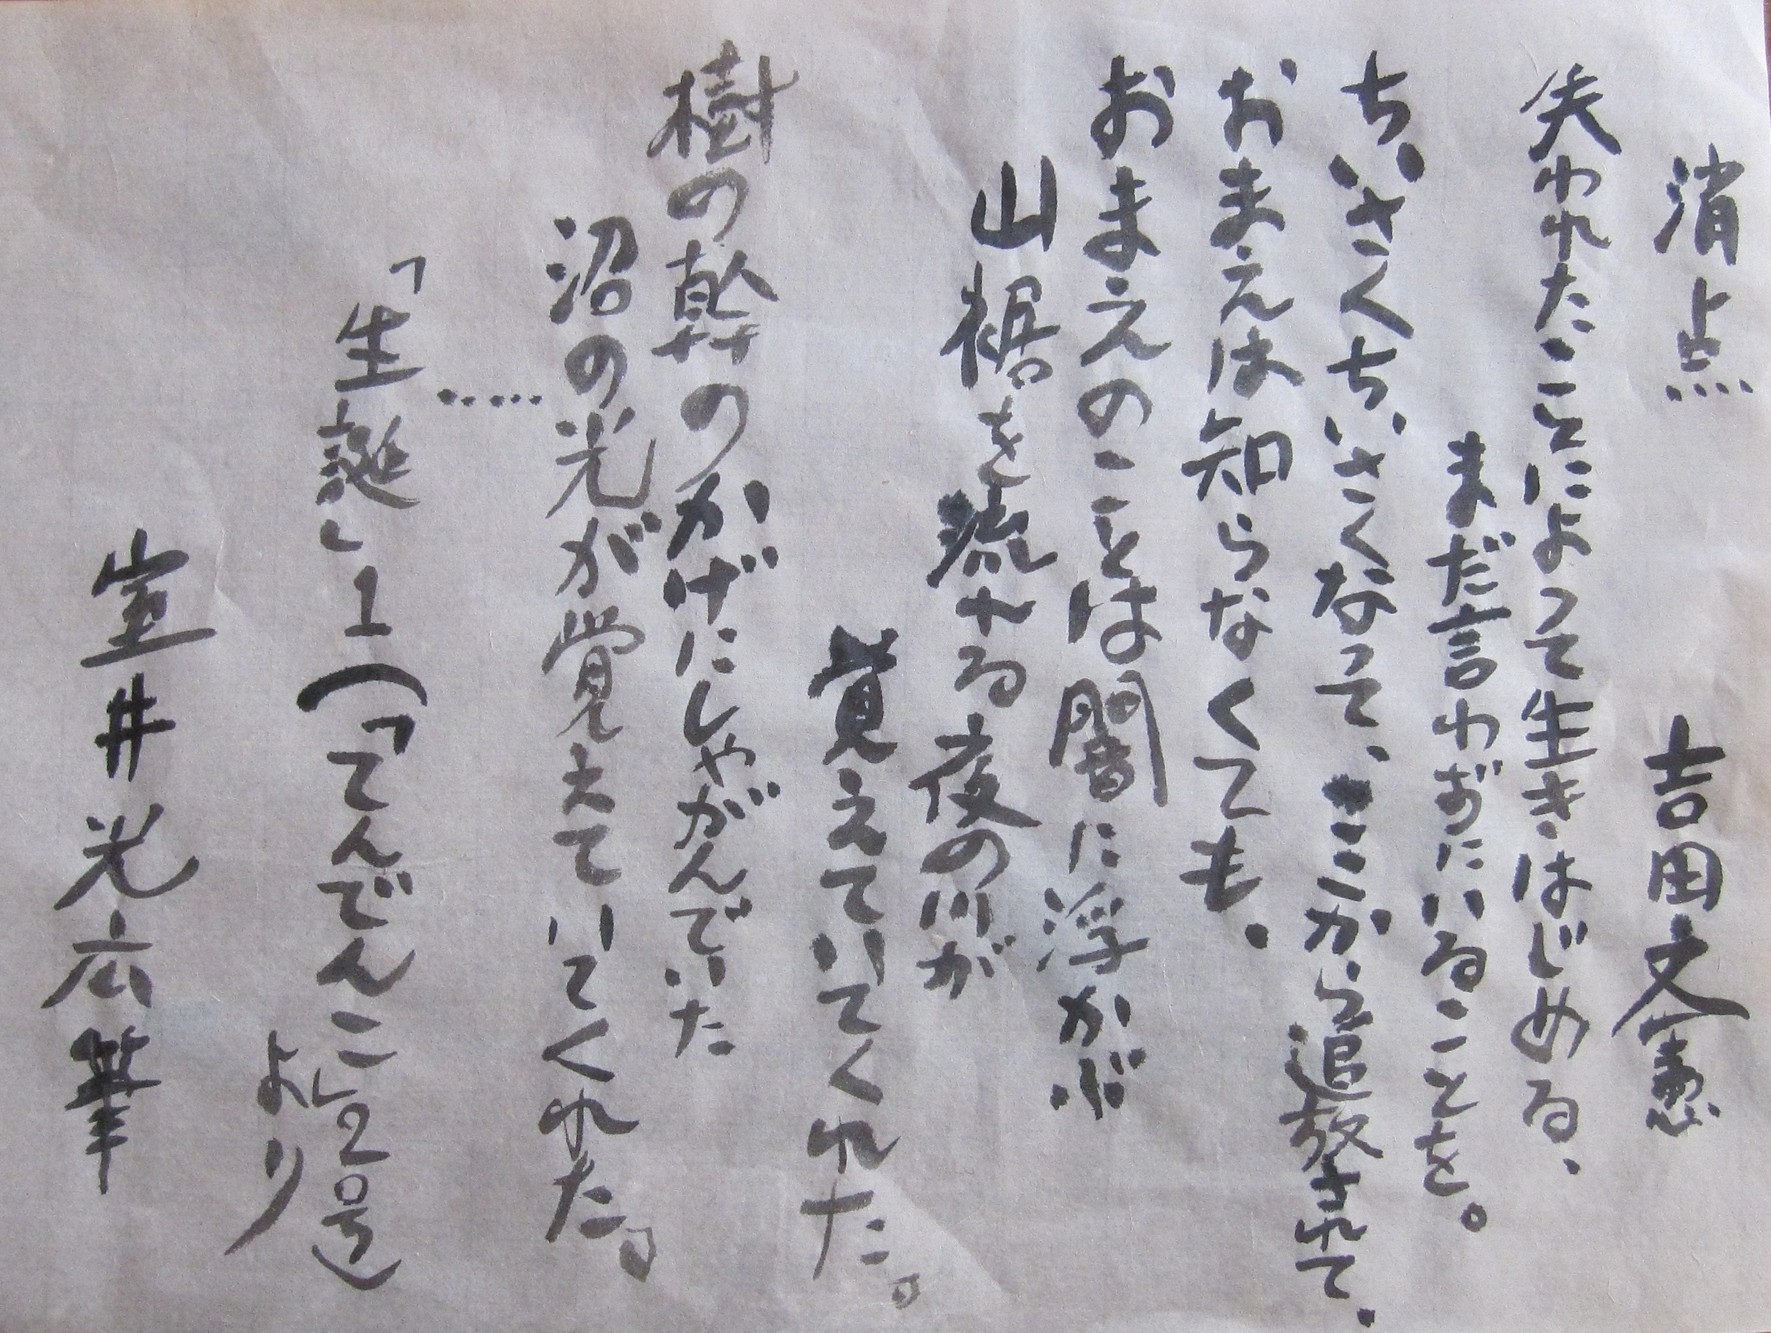 消点 吉田文憲
失われたことによって生きはじめる、
まだ言わずにいることを。
ちいさくちいさくなって、ここから追放されて、
おまえは知らなくても、
おまえのことは闇に浮かぶ
山裾を流れる夜の川が
覚えていてくれた。
樹の幹のかげにしゃがんでいた
沼の光が覚えていてくれた。
……
「生誕」1(「てんでんこ」2号)
より
室井光広筆